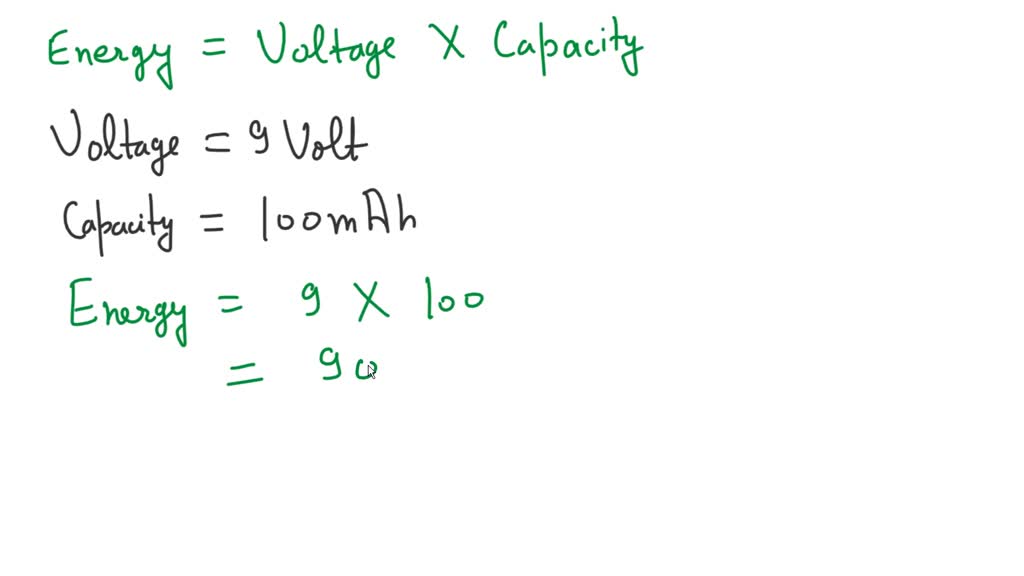 Energy = Voltage X Capacity
Voltage = 9 Volt
Capacity = 100mAh
Energy = 9 X 100
= 90